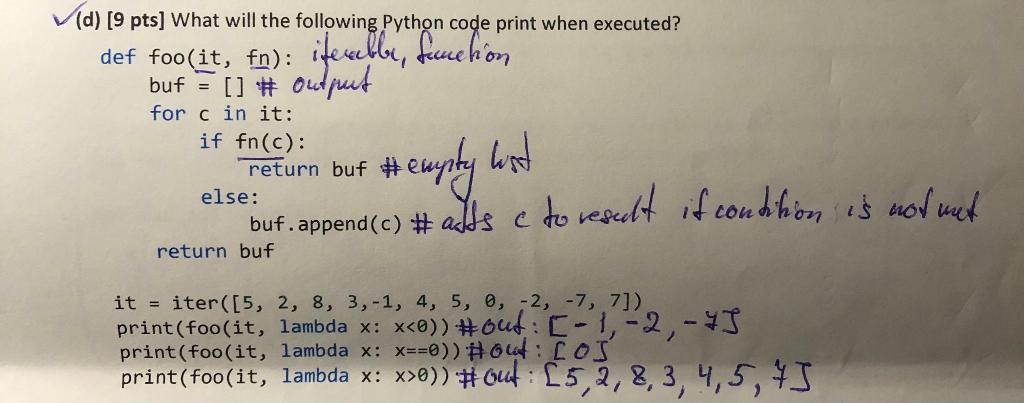 ✓(d) [9 pts] What will the following Python code print when executed?
def foo(it, fn): iterable, function
buf = [] # output
for c in it:
if fn(c):
return buf # empty list
else:
buf.append(c) # adds c to result if condition is not met
return buf
it = iter([5, 2, 8, 3,-1, 4, 5, 0, -2, -7, 7])
print(foo(it, lambda x: x<0)) #out: [-1, -2, -7]
print(foo(it, lambda x: x==0)) #out: [0]
print(foo(it, lambda x: x>0)) #out: [5, 2, 8, 3, 4, 5, 7]